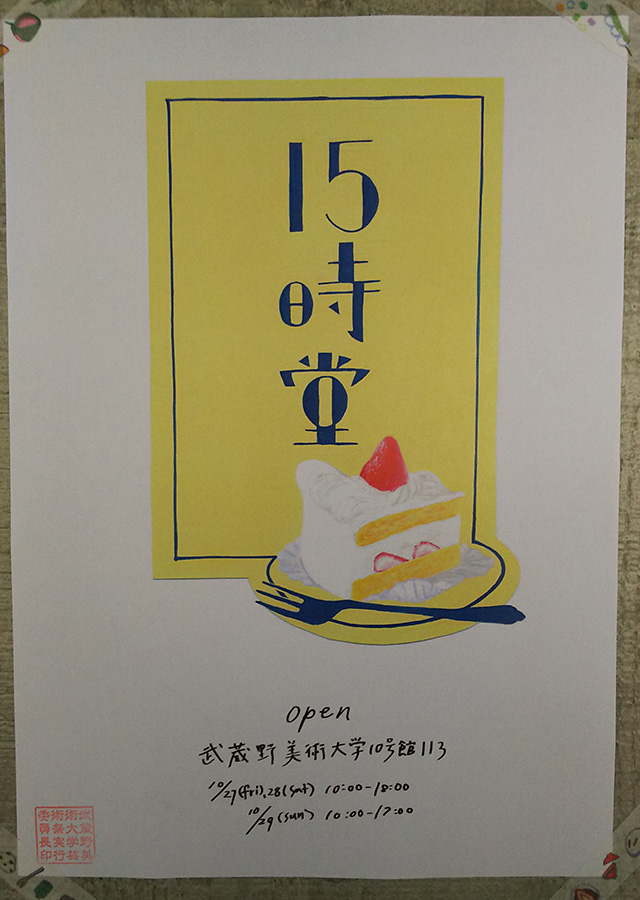 15
時
堂
open
武蔵野美術大学10号館113
10/27(fri),28(sat) 10:00-18:00
10/29(sun) 10:00-17:00
武蔵野美
術大学芸
術祭実行
委員長印